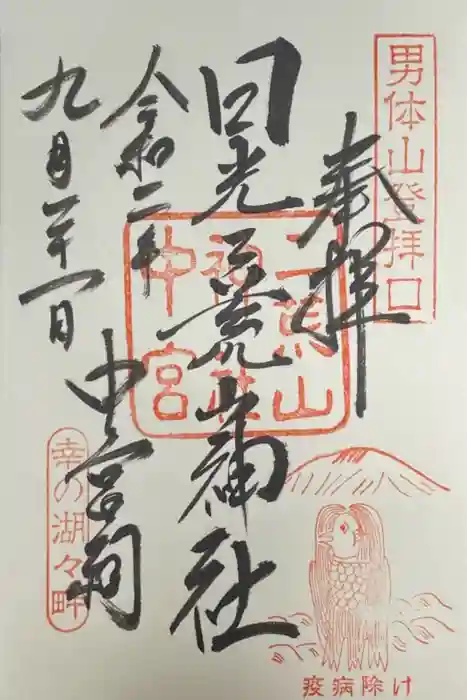 男体山登拝口
奉拝
日光二荒山神社
中宮祠
令和二年
九月二十一日
二荒山
神社
中宮
幸の湖々畔
疫病除け